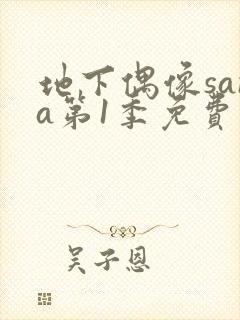 地下偶像sar
a第1季免費
吴子恩